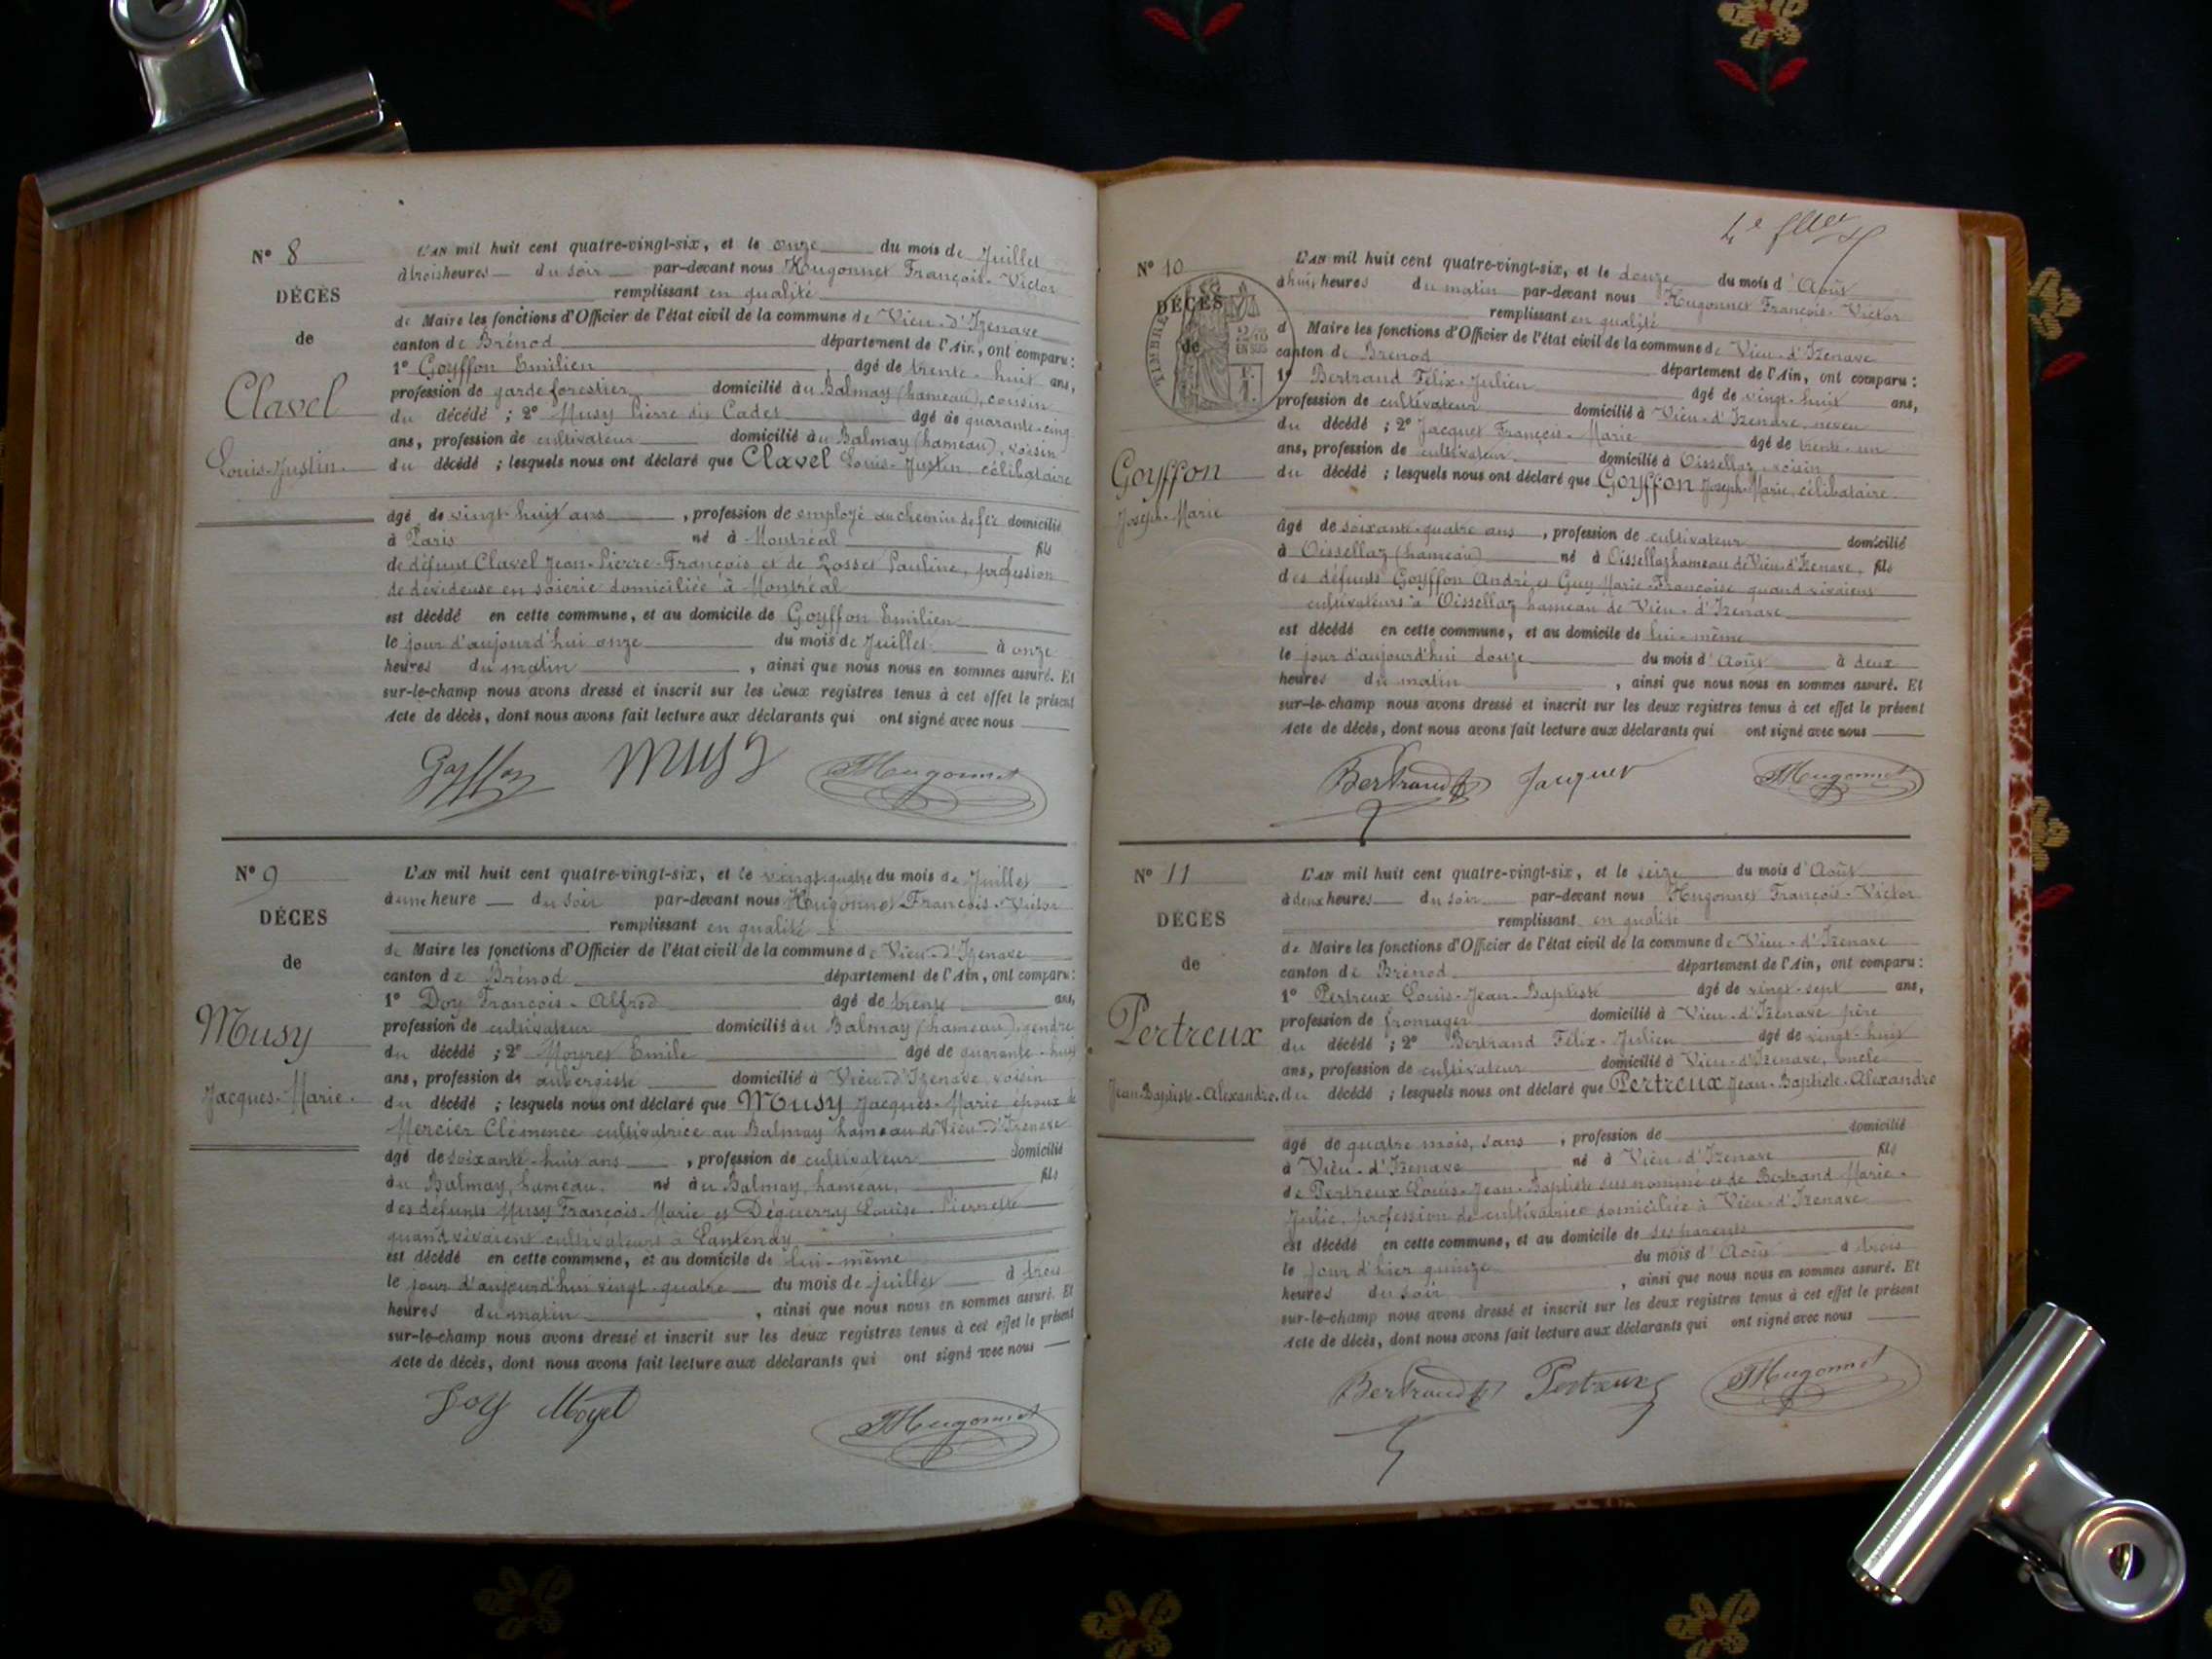 N° 8
DÉCÈS
de
Clavel
Louis-Justin.
L'AN mil huit cent quatre-vingt-six, et le onze du mois de Juillet
à trois heures du soir par-devant nous Hugonnet François-Victor
remplissant en qualité
de Maire les fonctions d'Officier de l'état civil de la commune de Vieu-d'Izenave
canton de Brénod département de l'Ain, ont comparu :
1° Goyffon Emilien, âgé de trente-huit ans,
profession de garde forestier domicilié au Balmay (hameau), cousin
du décédé ; 2° Musy Pierre dit Cadet âgé de quarante-cinq
ans, profession de cultivateur domicilié au Balmay (hameau), voisin
du décédé ; lesquels nous ont déclaré que Clavel Louis-Justin, célibataire
âgé de vingt-huit ans, profession de employé au chemin de fer domicilié
à Paris né à Montréal fils
de défunt Clavel Jean-Pierre-François et de Zosset Pauline, profession
de dévideuse en soierie domiciliée à Montréal
est décédé en cette commune, et au domicile de Goyffon Emilien
le jour d'aujourd'hui onze du mois de Juillet à onze
heures du matin, ainsi que nous nous en sommes assuré. Et
sur-le-champ nous avons dressé et inscrit sur les deux registres tenus à cet effet le présent
Acte de décès, dont nous avons fait lecture aux déclarants qui ont signé avec nous
Goyffon Musy Hugonnet
N° 9
DÉCÈS
de
Musy
Jacques-Marie.
L'AN mil huit cent quatre-vingt-six, et le vingt-quatre du mois de Juillet
à une heure du soir par-devant nous Hugonnet François-Victor
remplissant en qualité
de Maire les fonctions d'Officier de l'état civil de la commune de Vieu-d'Izenave
canton de Brénod département de l'Ain, ont comparu :
1° Doy François-Alfred âgé de trente ans,
profession de cultivateur domicilié au Balmay (hameau), gendre
du décédé ; 2° Moyret Emile âgé de quarante-huit
ans, profession de aubergiste domicilié à Vieu-d'Izenave, voisin
du décédé ; lesquels nous ont déclaré que Musy Jacques-Marie époux de
Mercier Clémence cultivatrice au Balmay hameau de Vieu-d'Izenave
âgé de soixante-huit ans, profession de cultivateur domicilié
au Balmay, hameau, né au Balmay, hameau, fils
des défunts Musy François-Marie et Déguerry Louise-Pierrette
quand vivaient cultivateurs à Lantenay
est décédé en cette commune, et au domicile de lui-même
le jour d'aujourd'hui vingt-quatre du mois de juillet à trois
heures du matin, ainsi que nous nous en sommes assuré. Et
sur-le-champ nous avons dressé et inscrit sur les deux registres tenus à cet effet le présent
Acte de décès, dont nous avons fait lecture aux déclarants qui ont signé avec nous
Doy Moyret Hugonnet
N° 10
TIMBRE
2/10 EN SUS
DÉCÈS
de
Goyffon
Joseph-Marie
L'AN mil huit cent quatre-vingt-six, et le douze du mois d'Août
à huit heures du matin par-devant nous Hugonnet François-Victor
remplissant en qualité
d Maire les fonctions d'Officier de l'état civil de la commune de Vieu-d'Izenave
canton de Brénod département de l'Ain, ont comparu :
1° Bertrand Félix-Julien âgé de vingt-huit ans,
profession de cultivateur domicilié à Vieu-d'Izenave, neveu
du décédé ; 2° Jacquet François-Marie âgé de trente-un
ans, profession de cultivateur domicilié à Oissellaz, voisin
du décédé ; lesquels nous ont déclaré que Goyffon Joseph-Marie, célibataire
âgé de soixante-quatre ans, profession de cultivateur domicilié
à Oissellaz (hameau) né à Oissellaz hameau de Vieu-d'Izenave, fils
des défunts Goyffon André et Guy Marie-Françoise quand vivaient
cultivateurs à Oissellaz hameau de Vieu-d'Izenave
est décédé en cette commune, et au domicile de lui-même
le jour d'aujourd'hui douze du mois d'Août à deux
heures du matin, ainsi que nous nous en sommes assuré. Et
sur-le-champ nous avons dressé et inscrit sur les deux registres tenus à cet effet le présent
Acte de décès, dont nous avons fait lecture aux déclarants qui ont signé avec nous
Bertrand Jacquet Hugonnet
N° 11
DÉCÈS
de
Pertreux
Jean-Baptiste-Alexandre.
L'AN mil huit cent quatre-vingt-six, et le seize du mois d'Août
à deux heures du soir par-devant nous Hugonnet François-Victor
remplissant en qualité
de Maire les fonctions d'Officier de l'état civil de la commune de Vieu-d'Izenave
canton de Brénod département de l'Ain, ont comparu :
1° Pertreux Louis-Jean-Baptiste âgé de vingt-sept ans,
profession de fromager domicilié à Vieu-d'Izenave père
du décédé ; 2° Bertrand Félix-Julien âgé de vingt-huit
ans, profession de cultivateur domicilié à Vieu-d'Izenave, oncle
du décédé ; lesquels nous ont déclaré que Pertreux Jean-Baptiste-Alexandre
âgé de quatre mois, sans, profession de domicilié
à Vieu-d'Izenave né à Vieu-d'Izenave fils
de Pertreux Louis-Jean-Baptiste sus nommé et de Bertrand Marie-
Julie, profession de cultivatrice domiciliée à Vieu-d'Izenave
est décédé en cette commune, et au domicile de ses parents
le jour d'hier quinze du mois d'Août à trois
heures du soir, ainsi que nous nous en sommes assuré. Et
sur-le-champ nous avons dressé et inscrit sur les deux registres tenus à cet effet le présent
Acte de décès, dont nous avons fait lecture aux déclarants qui ont signé avec nous
Bertrand Pertreux Hugonnet